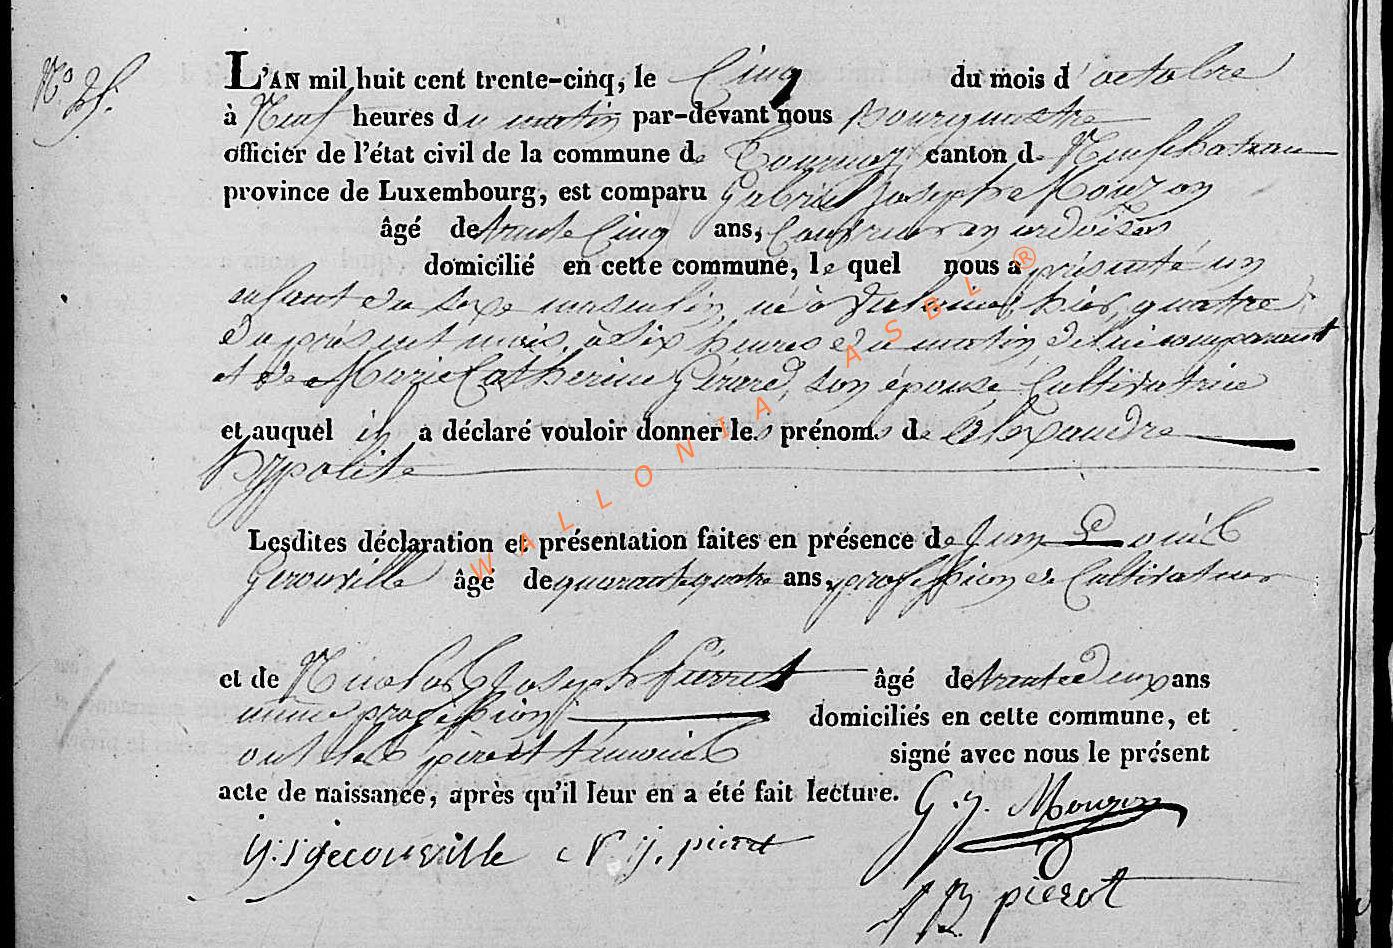 N° 25.
L'AN mil huit cent trente-cinq, le Cinq du mois d'octobre
à Neuf heures du matin par-devant nous Bourgmestre
officier de l'état civil de la commune de Tournay canton de Neufchateau
province de Luxembourg, est comparu Gabriel Joseph Mouzon
âgé de trente Cinq ans, Couvreur en ardoises
domicilié en cette commune, le quel nous a présenté un
enfant du sexe masculin, né à hier, quatre
du présent mois, à six heures du matin, de lui comparant
et de Marie Catherine Gerard, son épouse Cultivatrice
et auquel il a déclaré vouloir donner les prénoms de Alexandre
hyppolite
Lesdites déclaration et présentation faites en présence de Jean Louis
Gerouville âgé de quarante quatre ans, profession de Cultivateur
et de Nicolas Joseph Pierret âgé de trente deux ans
même profession domiciliés en cette commune, et
ont les père et témoins signé avec nous le présent
acte de naissance, après qu'il leur en a été fait lecture.
G. J. Mouzon
j. l gerouville N. j. pierret
pierot
WALLONIA ASBL ®